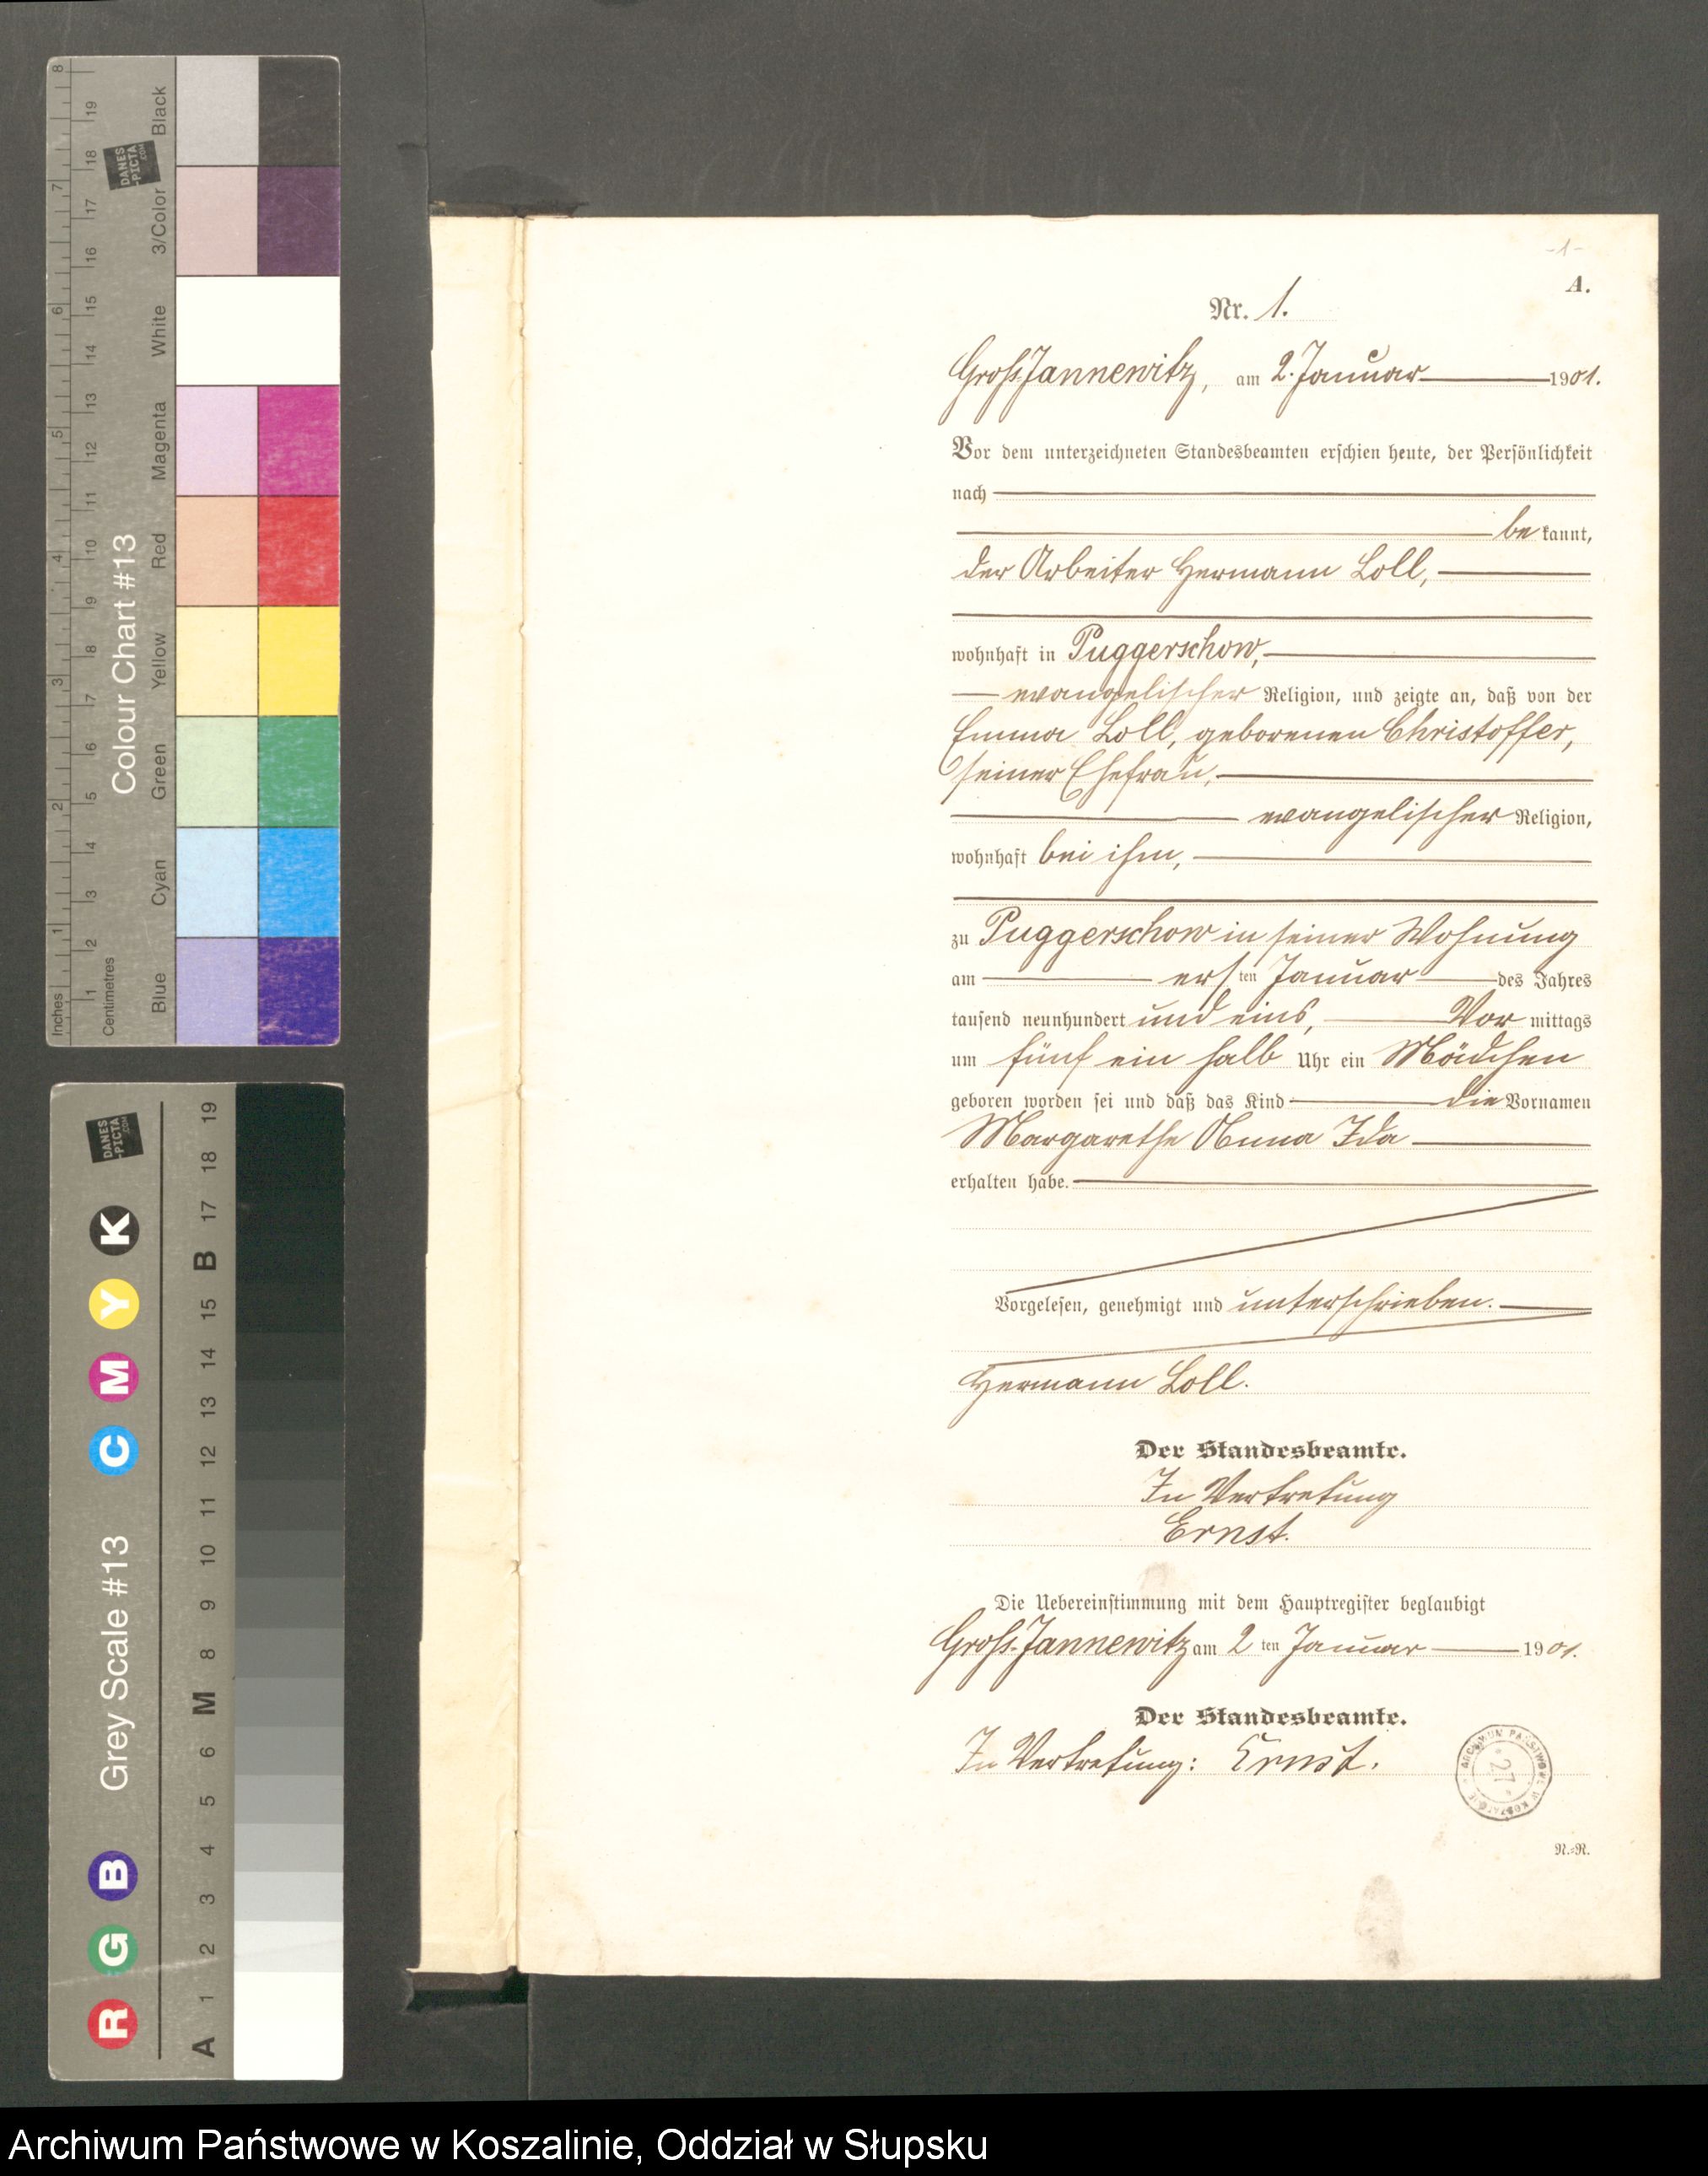 -1-
A.
Nr. 1.
Groß-Jannewitz, am 2. Januar 1901.
Vor dem unterzeichneten Standesbeamten erschien heute, der Persönlichkeit
nach
be kannt,
der Arbeiter Hermann Loll,
wohnhaft in Puggerschow,
evangelischer Religion, und zeigte an, daß von der
Emma Loll, geborenen Christoffer,
seiner Ehefrau,
evangelischer Religion,
wohnhaft bei ihm,
zu Puggerschow in seiner Wohnung
am ersten Januar des Jahres
tausend neunhundert und eins, Vor mittags
um fünf ein halb Uhr ein Mädchen
geboren worden sei und daß das Kind die Vornamen
Margarethe Anna Ida
erhalten habe.
Vorgelesen, genehmigt und unterschrieben.
Hermann Loll.
Der Standesbeamte.
In Vertretung
Ernst.
Die Uebereinstimmung mit dem Hauptregister beglaubigt
Groß-Jannewitz am 2 ten Januar 1901.
Der Standesbeamte.
In Vertretung: Ernst.
ARCHIWUM PAŃSTWOWE W KOSZALINIE
27
N.-R.
Colour Chart #13
Black
3/Color
White
Magenta
Red
Yellow
Green
Cyan
Blue
Inches
1 2 3 4 5 6 7 8
Centimetres
1 2 3 4 5 6 7 8 9 10 11 12 13 14 15 16 17 18 19
DANES
-PICTA
.COM
Grey Scale #13
R G B C M Y K
A 1 2 3 4 5 6 M 8 9 10 11 12 13 14 15 B 17 18 19
DANES
-PICTA
.COM
Archiwum Państwowe w Koszalinie, Oddział w Słupsku